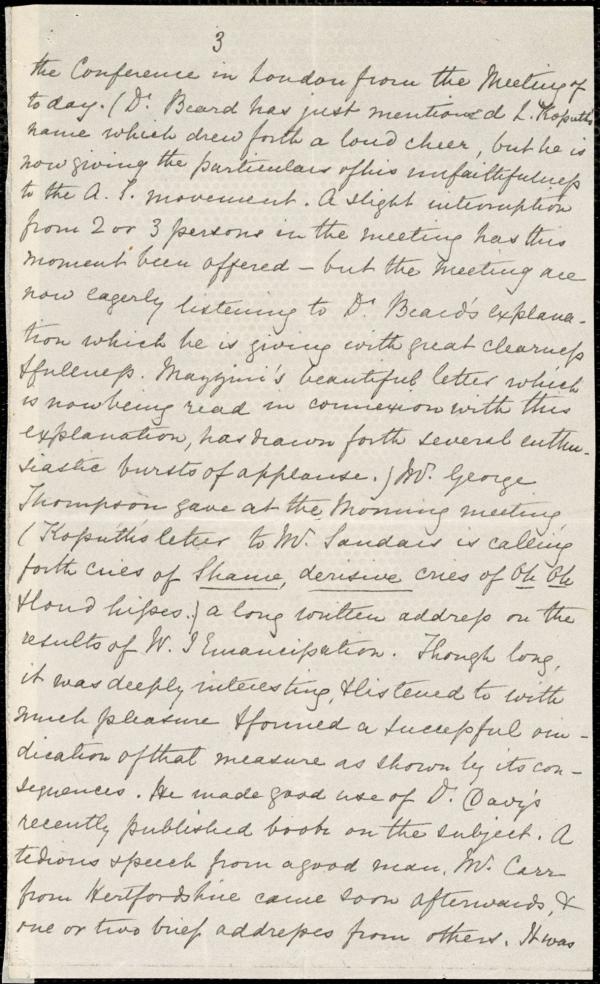 3
the Conference in London from the Meeting of
to day. (Dr. Beard has just mentioned L. Kossuth's
name which drew forth a loud cheer, but he is
now giving the particulars of his unfaithfulness
to the A. S. movement. A slight interruption
from 2 or 3 persons in the meeting has this
moment been offered – but the meeting are
now eagerly listening to Dr. Beard's explana-
tion which he is giving with great clearness
& fullness. Mazzini's beautiful letter which
is now being read in connexion with this
explanation, has drawn forth several enthu-
siastic bursts of applause.) Mr. George
Thompson gave at the Morning meeting,
(Kossuth's letter to Mr. Sandars is calling
forth cries of Shame, derisive cries of Oh Oh
& loud hisses.) a long written address on the
results of W. I Emancipation. Though long,
it was deeply interesting, & listened to with
much pleasure & formed a successful vin-
dication of that measure as shown by its con-
sequences. He made good use of Dr. Davy's
recently published book on the subject. A
tedious speech from a good man, Mr. Carr
from Hertfordshire came soon afterwards, &
one or two brief addresses from others. It was